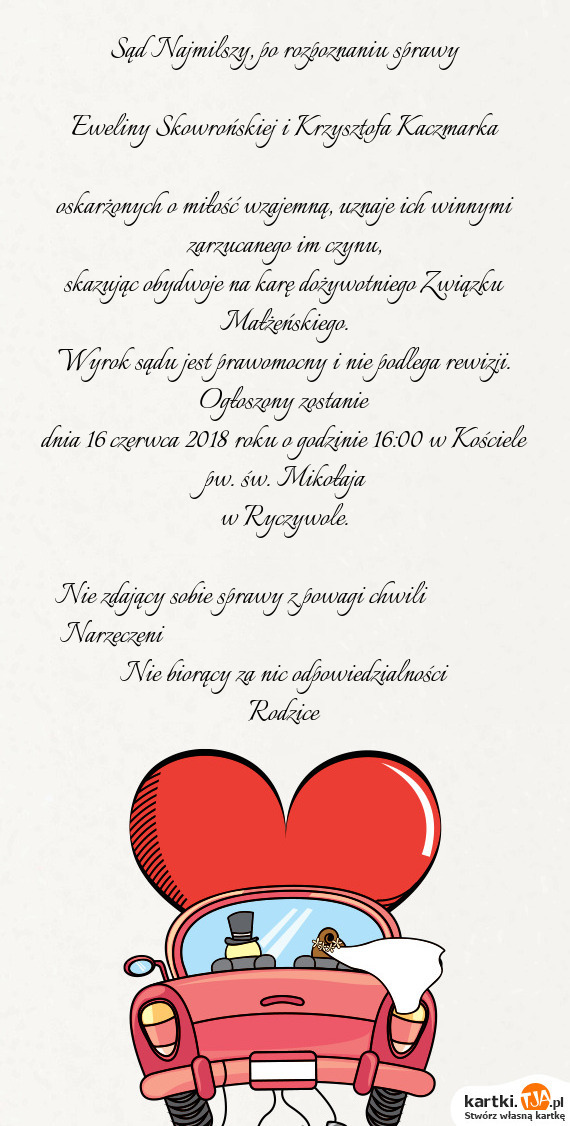 Sąd Najmilszy, po rozpoznaniu sprawy
Eweliny Skowrońskiej i Krzysztofa Kaczmarka
oskarżonych o miłość wzajemną, uznaje ich winnymi
zarzucanego im czynu,
skazując obydwoje na karę dożywotniego Związku
Małżeńskiego.
Wyrok sądu jest prawomocny i nie podlega rewizji.
Ogłoszony zostanie
dnia 16 czerwca 2018 roku o godzinie 16:00 w Kościele
pw. św. Mikołaja
w Ryczywole.
Nie zdający sobie sprawy z powagi chwili
Narzeczeni
Nie biorący za nic odpowiedzialności
Rodzice
kartki.TJA.pl
Stwórz własną kartkę